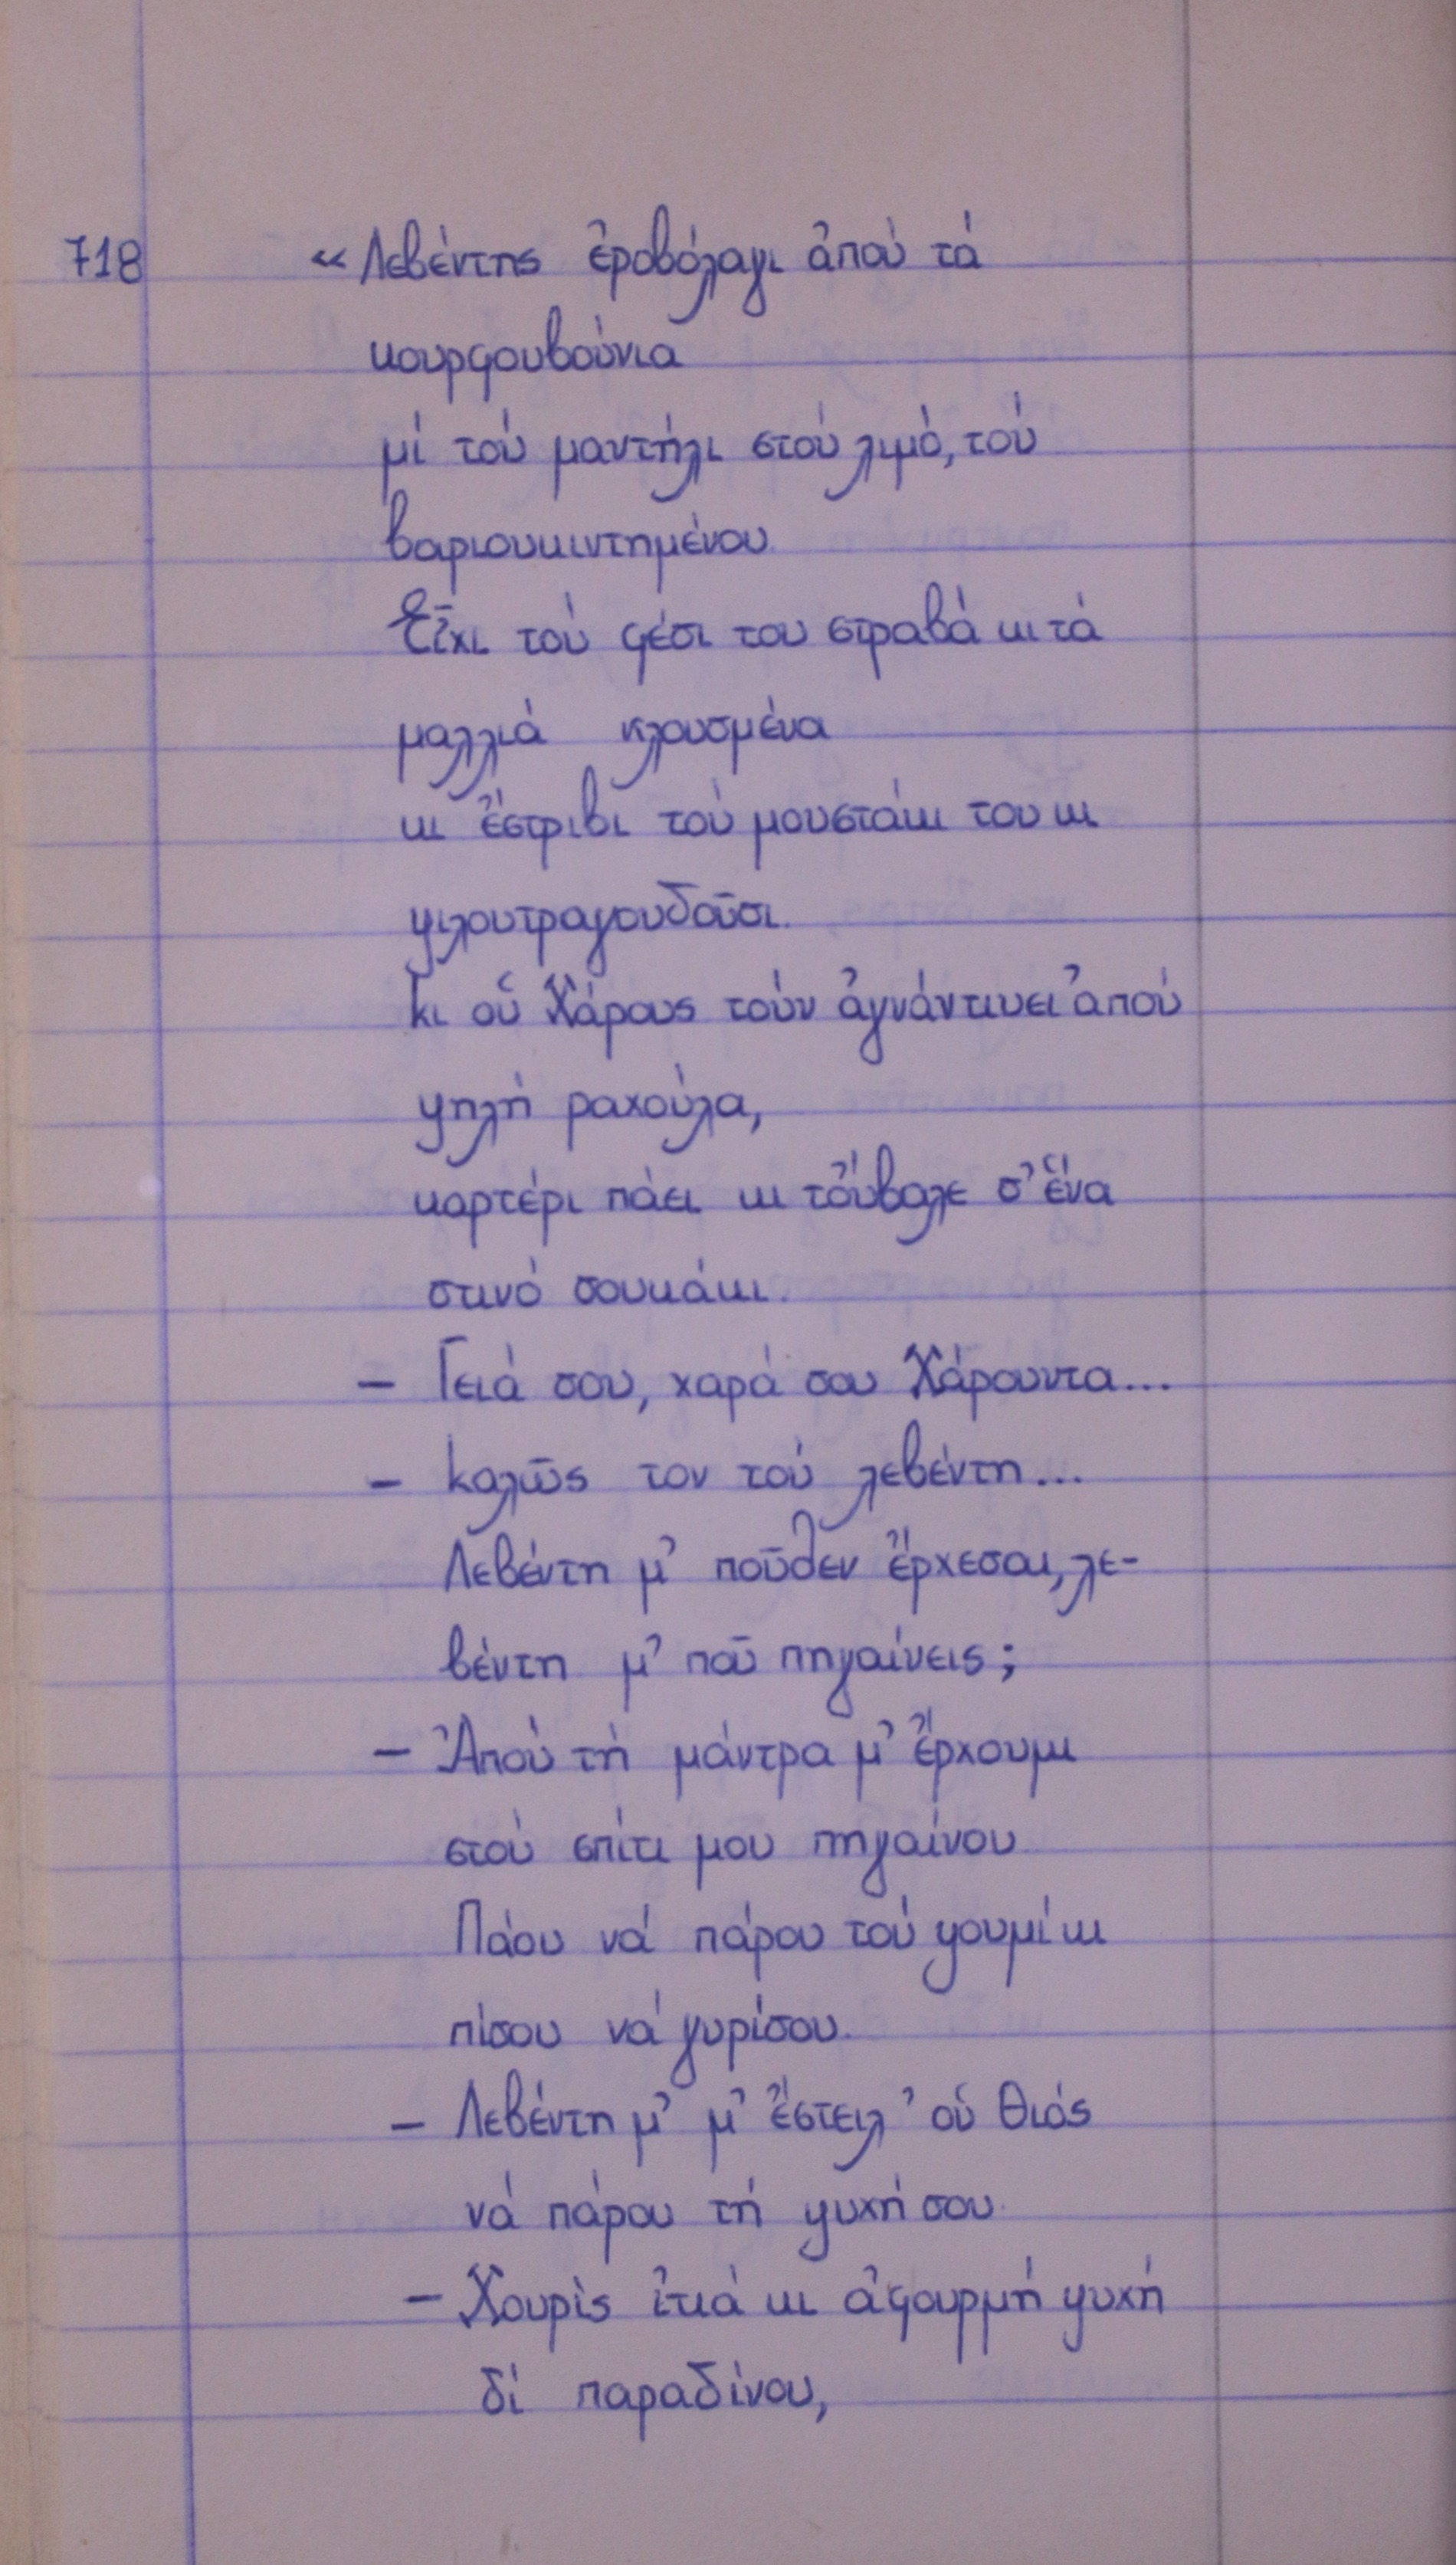 718 « Λεβέντης ἐροβόλαγι ἀπού τά
κουρφουβούνια
μί τού μαντήλι στού λιμό, τού
βαριουκιντημένου
Εἶχι τού φέσι του στραβά κι τά
μαλλιά κλουσμένα
κι ἔστριβι τού μουστάκι του κι
ψιλουτραγουδοῦσι.
Κι οὑ Χάρους τούν ἀγνάντιυει ἀπού
ψηλή ραχούλα,
καρτέρι πάει κι τὄυβαλε σ' ἕνα
στινό σουκάκι.
– Γειά σου, χαρά σου Χάρουντα...
– Καλῶς τον τού λεβέντη...
Λεβέντη μ' ποῦθεν ἔρχεσαι, λε-
βέντη μ' ποῦ πηγαίνεις;
– Ἀπού τή μάντρα μ' ἔρχουμι
στού σπίτι μου πηγαίνου
Πάου νά πάρου τού ψουμί κι
πίσου νά γυρίσου.
– Λεβέντη μ' μ' ἔστειλ' οὑ Θιός
νά πάρου τή ψυχή σου.
– Χουρίς ἰτιά κι ἀφουρμή ψυχή
δί παραδίνου,